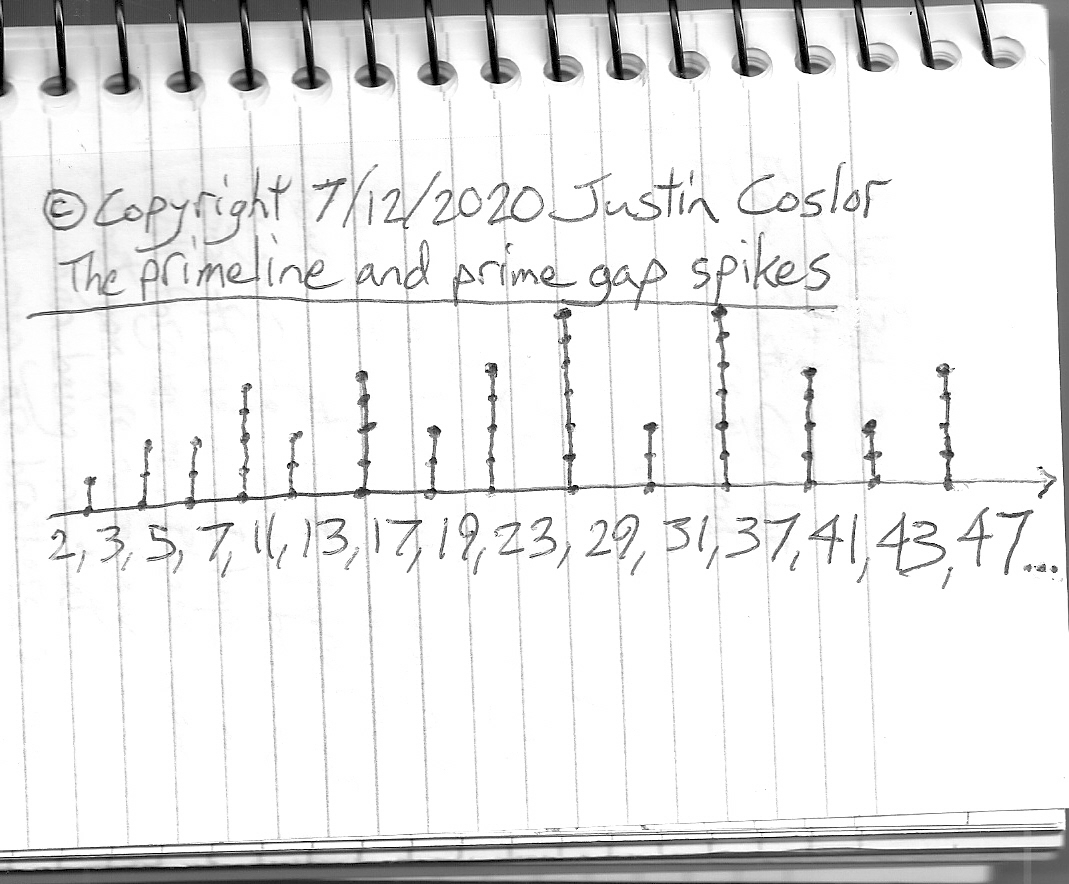 © Copyright 7/12/2020 Justin Coslor
The primeline and prime gap spikes
2, 3, 5, 7, 11, 13, 17, 19, 23, 29, 31, 37, 41, 43, 47...